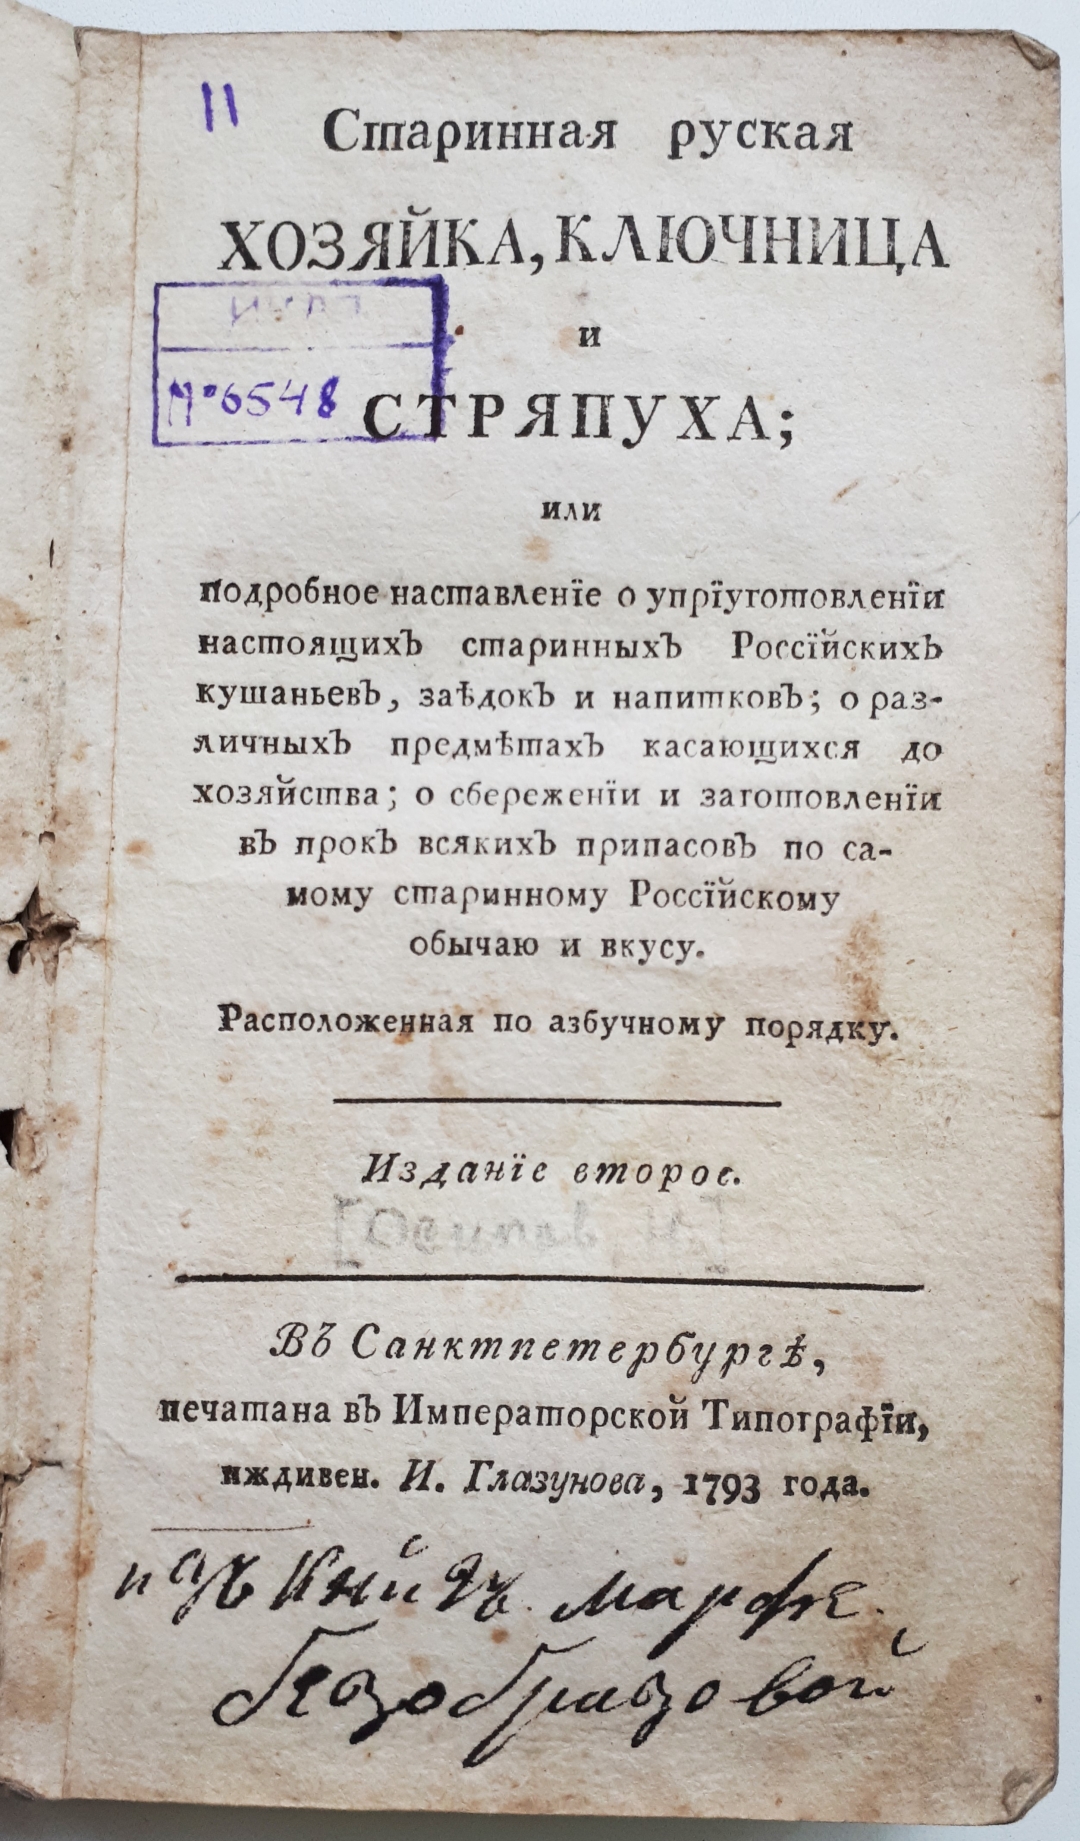 11
Старинная руская
ХОЗЯЙКА, КЛЮЧНИЦА
и
№ 6548
СТРЯПУХА;
или
подробное наставленїе о упрїуготовленїи
настоящихЪ старинныхЪ РоссїйскихЪ
кушаньевЪ, заѣдокЪ и напитковЪ; о раз-
личныхЪ предмѣтахЪ касающихся до
хозяйства; о сбереженїи и заготовленїи
вЪ прокЪ всякихЪ припасовЪ по са-
мому старинному Россїйскому
обычаю и вкусу.
Расположенная по азбучному порядку.
Изданїе второе.
[Осипов Н.]
ВЪ Санктпетербургѣ,
печатана вЪ Императорской Типографїи,
иждивен. И. Глазунова, 1793 года.
изъ книгъ марфе
безобразовой